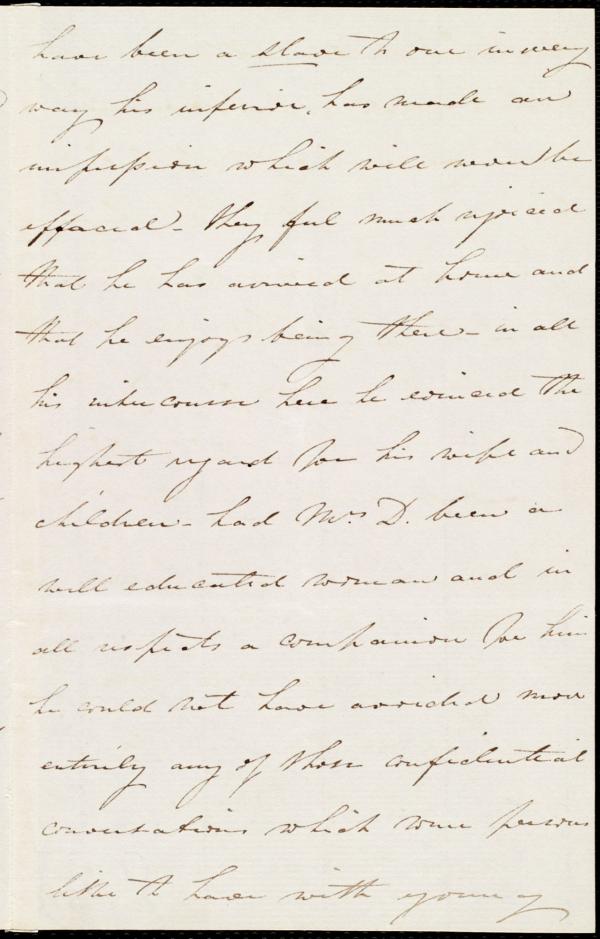 have been a slave to one in every
way his inferior, has made an
impression which will never be
effaced - they feel much rejoiced
that he has arrived at home and
that he enjoys being there - in all
his intercourse here he evinced the
highest regard for his wife and
children - had Mrs D. been a
well educated woman and in
all respects a companion for him
he could not have avoided more
entirely any of those confidential
conversations which some persons
like to have with young